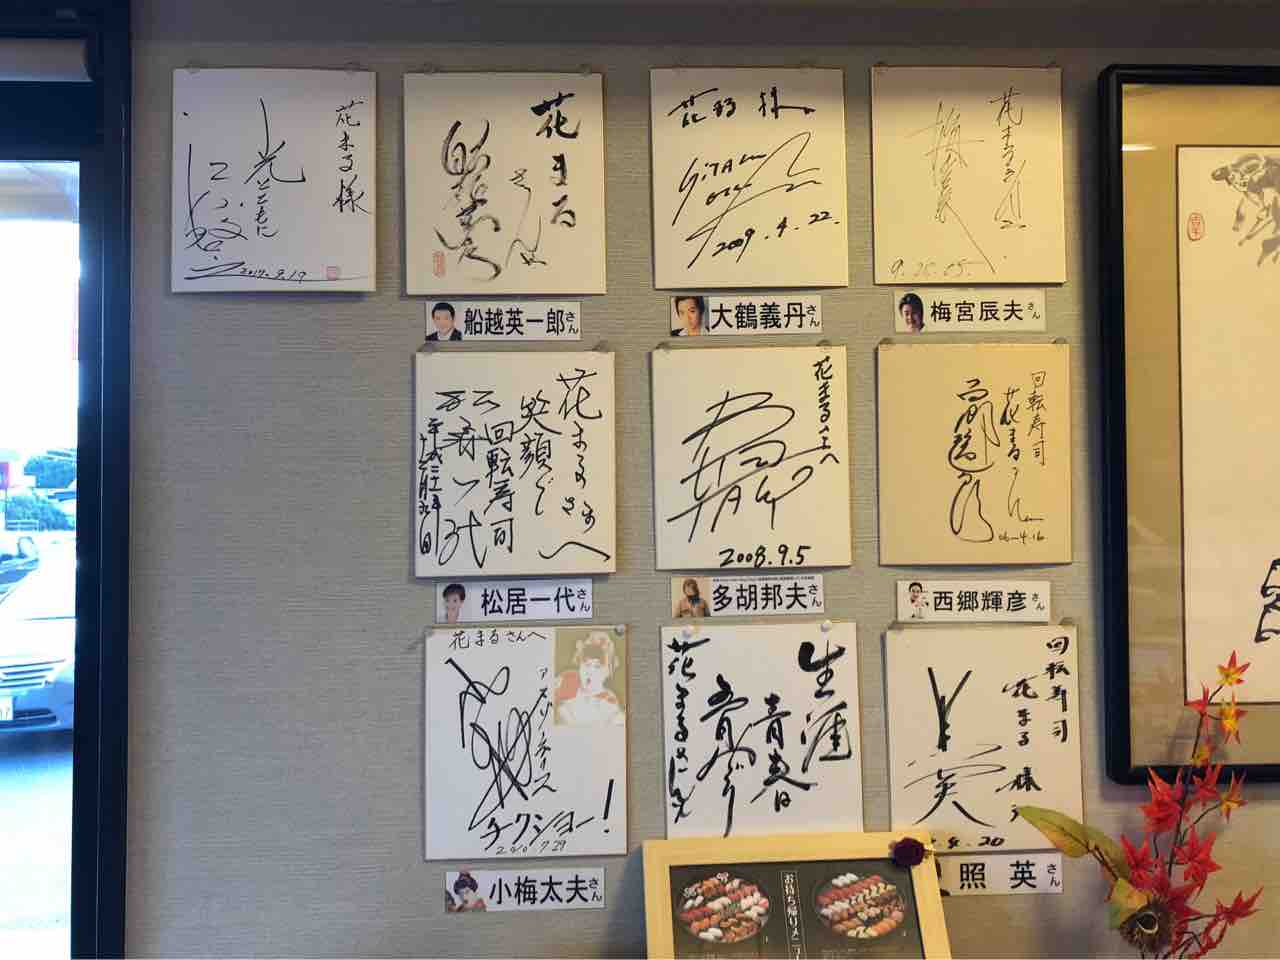 花まる様
光とともに
2017.9.19
花まる
さん江
船越英一郎さん
花まる様
GITAN
2009.4.22.
大鶴義丹さん
花まるさん江
9.26.05.
梅宮辰夫さん
花まるさまへ
笑顔で
回転寿司
松居一代さん
花まるさんへ
2008.9.5
多胡邦夫さん
回転寿司
花まるさん江
06-4.16
西郷輝彦さん
花まるさんへ
チクショー!
2010 7 29
小梅太夫さん
生涯
青春
花まるさん江
回転寿司
花まる様
4.20
照英さん
お持ち帰りメニュー